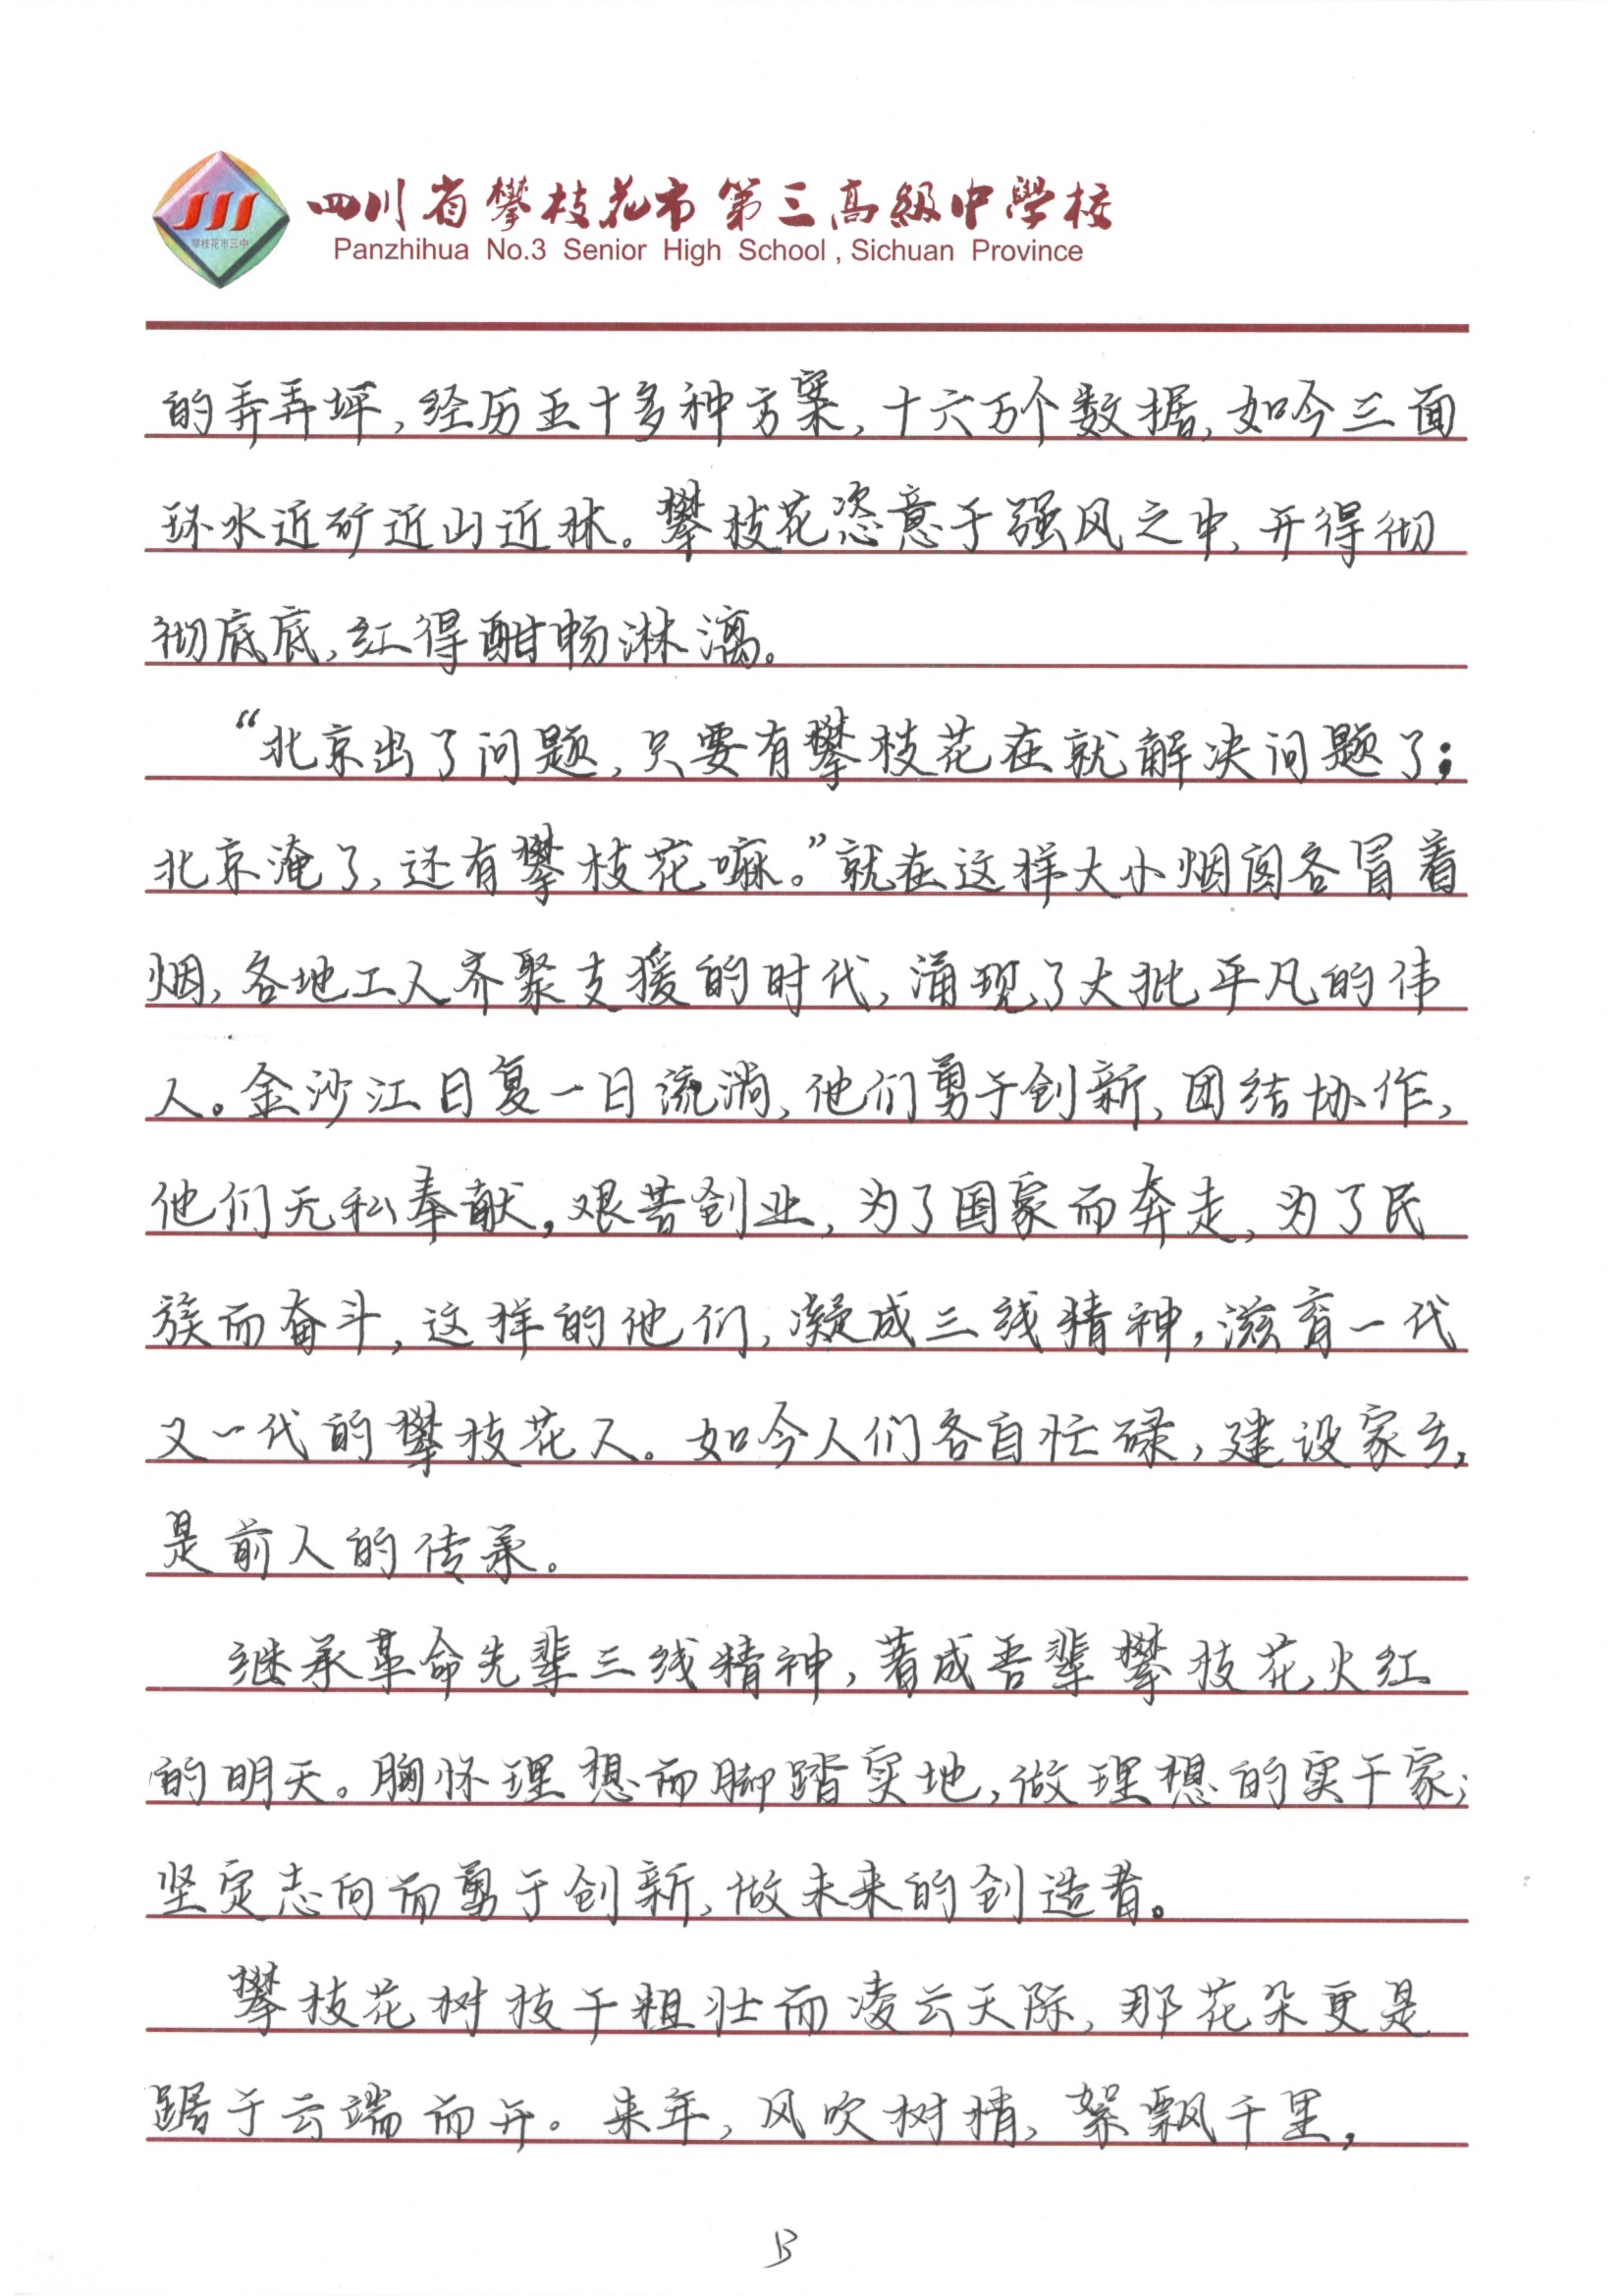 攀枝花市三中
四川省攀枝花市第三高級中學校
Panzhihua No.3 Senior High School , Sichuan Province
的弄弄坪，经历五十多种方案，十六万个数据，如今三面
环水近矿近山近林。攀枝花恣意于强风之中，开得彻
彻底底，红得酣畅淋漓。
“北京出了问题，只要有攀枝花在就解决问题了；
北京淹了，还有攀枝花嘛。”就在这样大小烟囱各冒着
烟，各地工人齐聚支援的时代，涌现了大批平凡的伟
人。金沙江日复一日流淌，他们勇于创新，团结协作，
他们无私奉献，艰苦创业，为了国家而奔走，为了民
族而奋斗，这样的他们，凝成三线精神，滋育一代
又一代的攀枝花人。如今人们各自忙碌，建设家乡，
是前人的传承。
继承革命先辈三线精神，著成吾辈攀枝花火红
的明天。胸怀理想而脚踏实地，做理想的实干家；
坚定志向而勇于创新，做未来的创造者。
攀枝花树枝干粗壮而凌云天际，那花朵更是
踞于云端而开。来年，风吹树梢，絮飘千里，